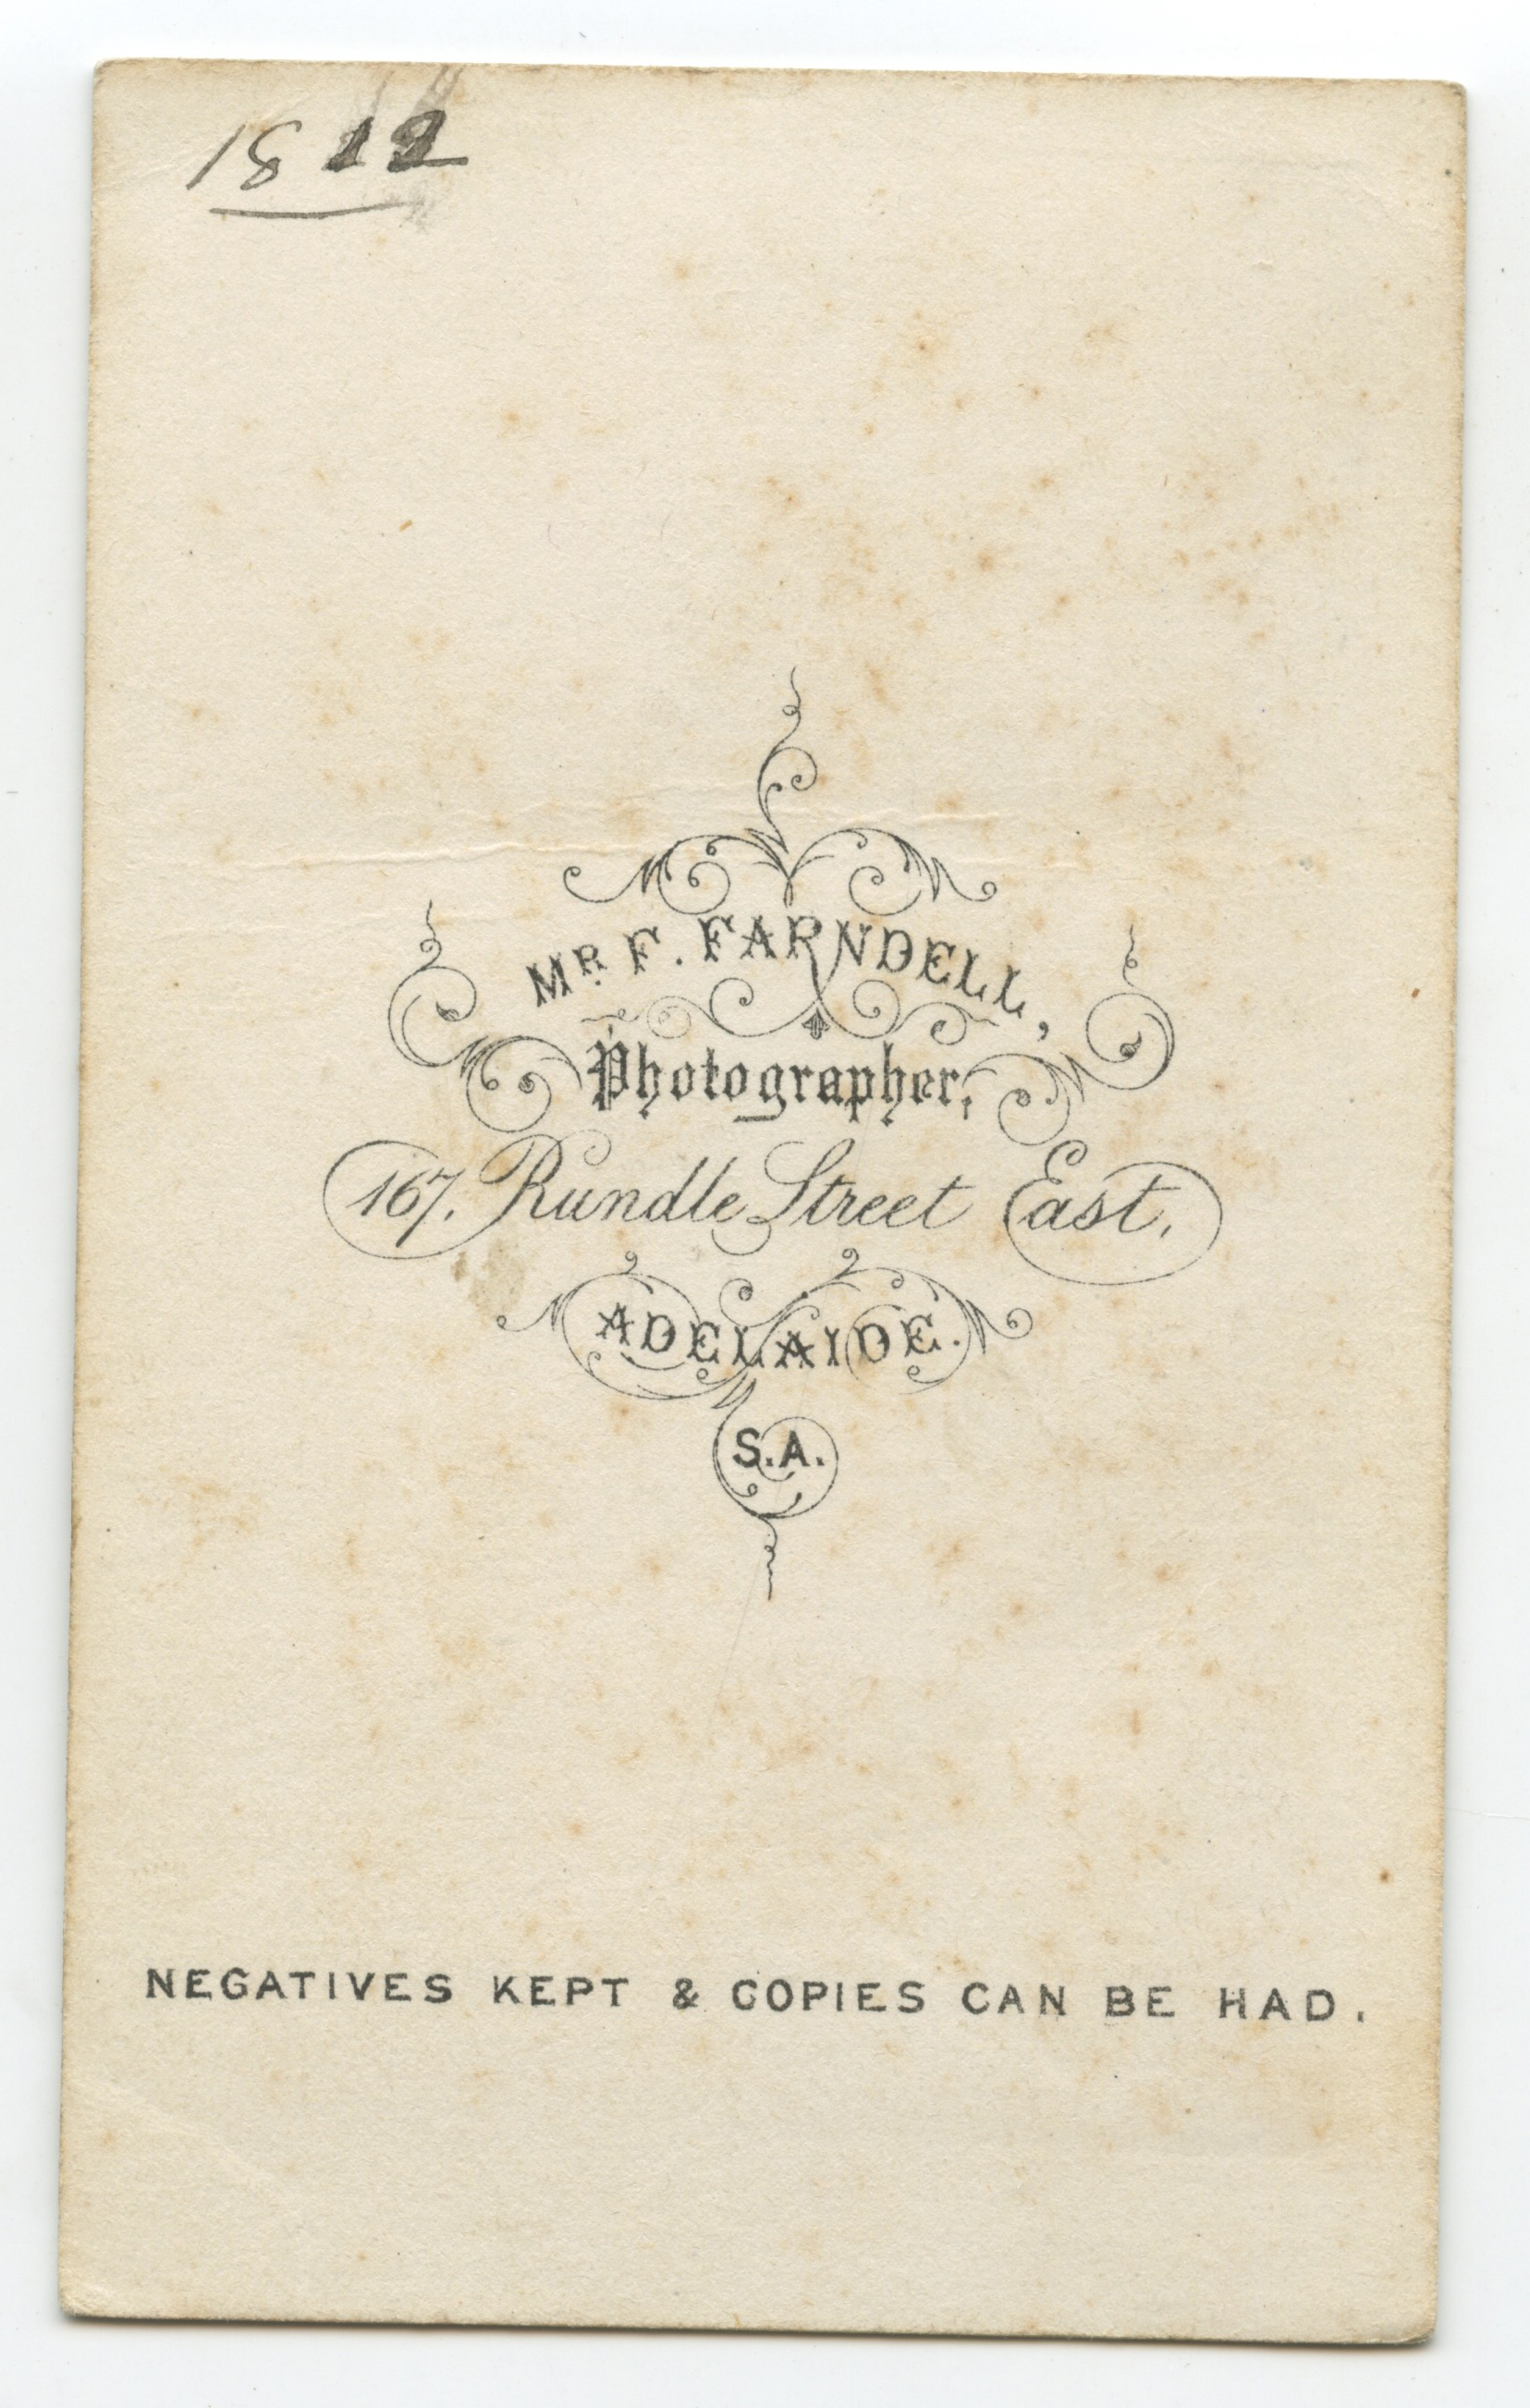 MR. F. FARNDELL,
Photographer,
167, Rundle Street East,
ADELAIDE.
S.A.
NEGATIVES KEPT & COPIES CAN BE HAD.